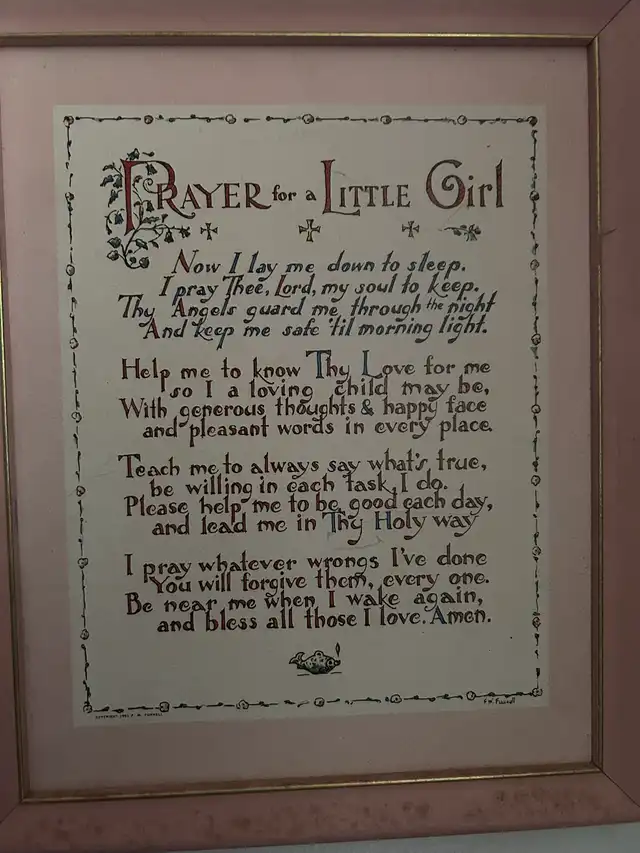 PRAYER for a LITTLE Girl
Now I lay me down to sleep.
I pray Thee, Lord, my soul to keep.
Thy Angels guard me through the night
And keep me safe 'til morning light.
Help me to know Thy Love for me
so I a loving child may be,
With generous thoughts & happy face
and pleasant words in every place.
Teach me to always say what's true,
be willing in each task I do.
Please help me to be good each day,
and lead me in Thy Holy way
I pray whatever wrongs I've done
You will forgive them, every one.
Be near me when I wake again,
and bless all those I love. Amen.
COPYRIGHT